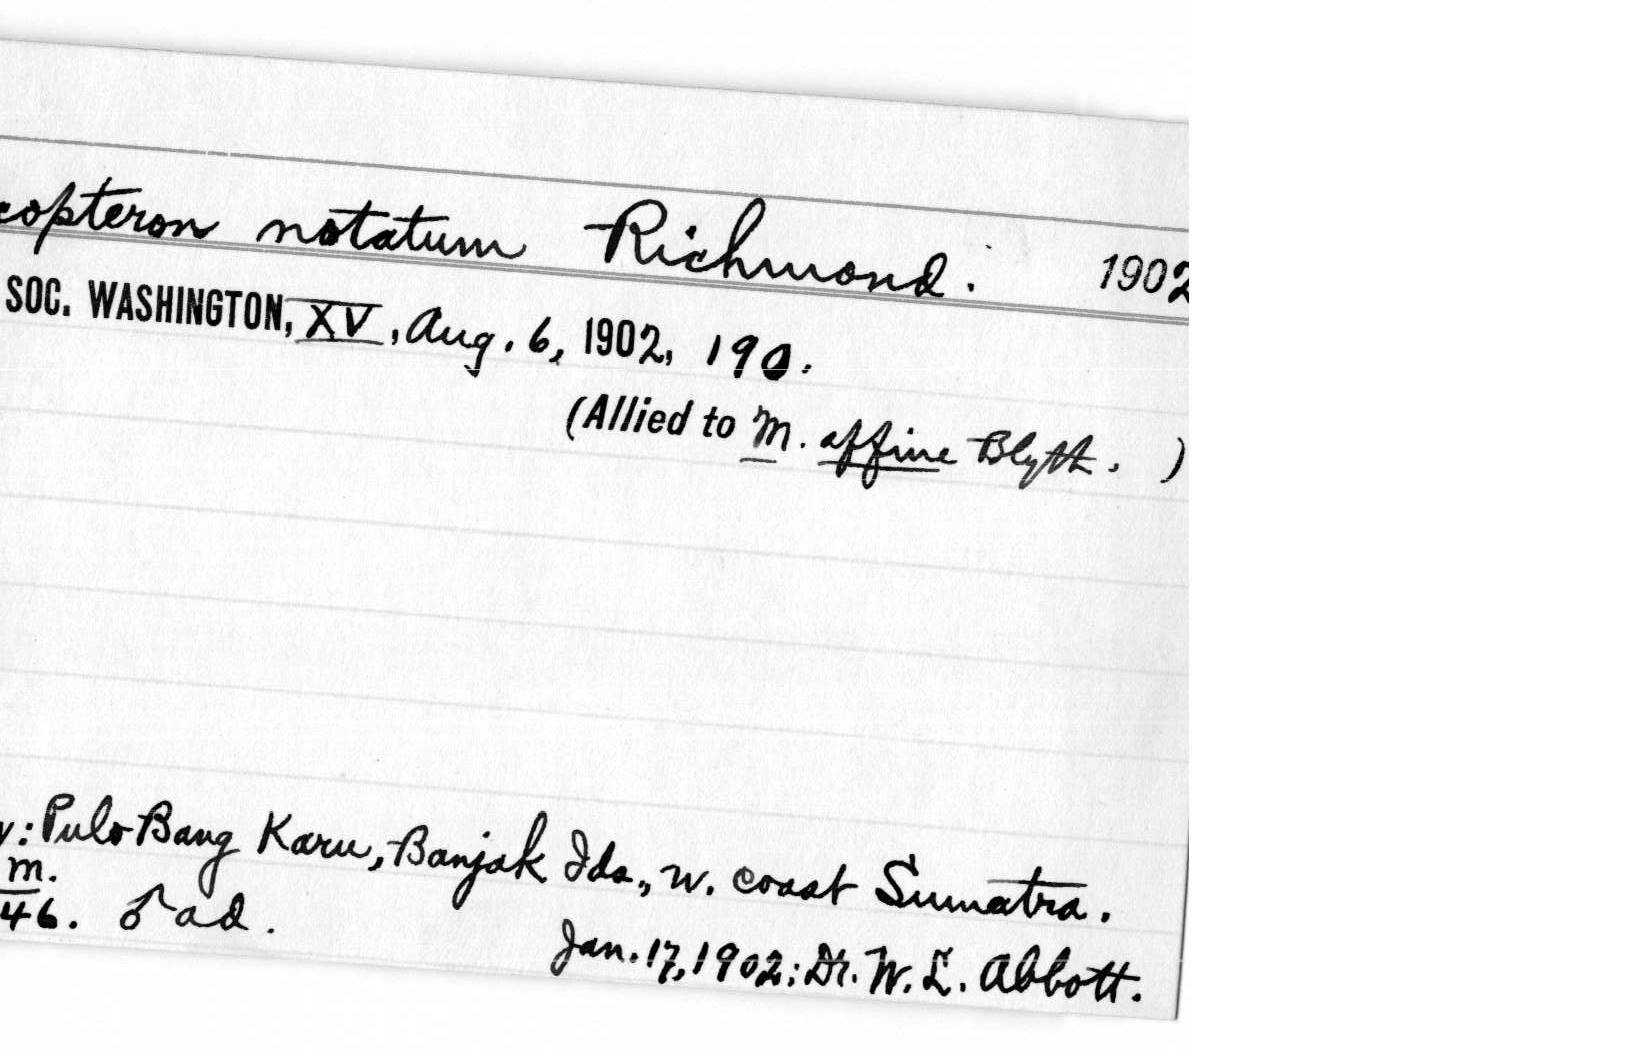 copteron notatum Richmond. 1902
SOC. WASHINGTON, XV, Aug. 6, 1902, 190.
(Allied to M. affine Blyth. )
y: Pulo Bang Karu, Banjak Ids., w. coast Sumatra.
m.
46. ♂ ad.
Jan. 17, 1902; Dr. W. L. Abbott.